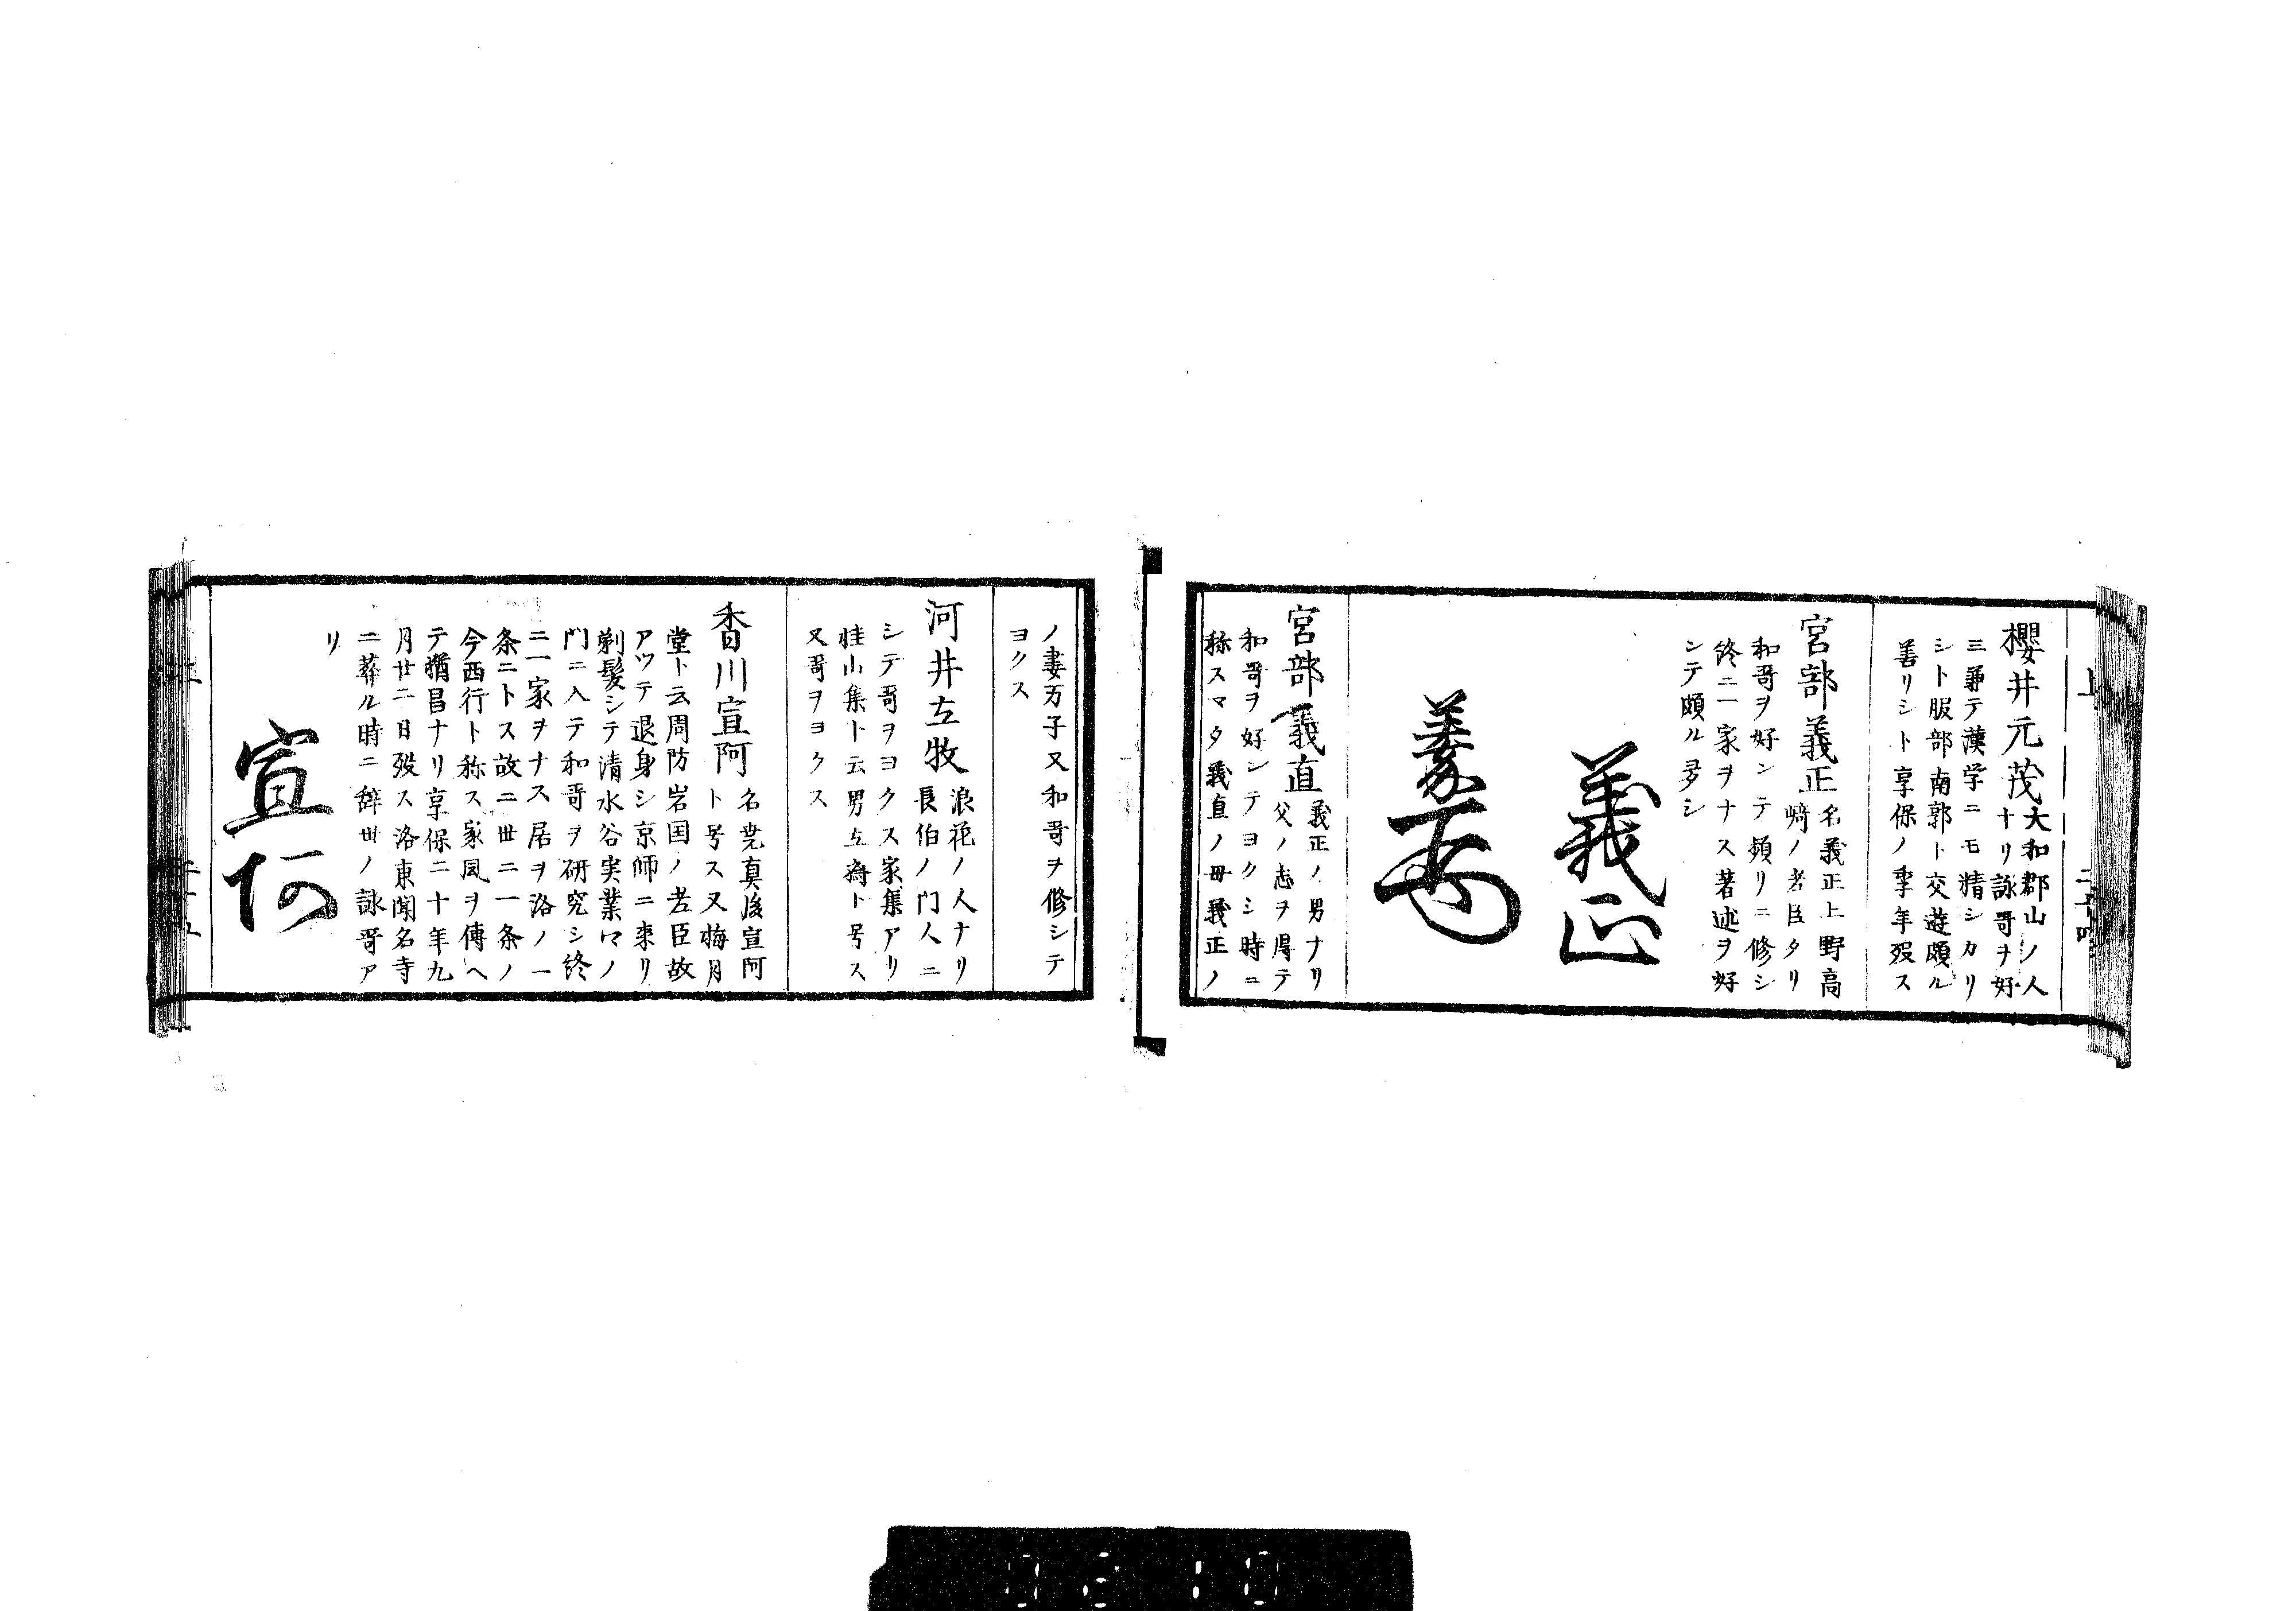 櫻井元茂 大和郡山ノ人
ナリ詠哥ヲ好
三兼テ漢学ニモ精シカリ
シト服部南郭ト交遊頗ル
善リシト享保ノ季年歿ス
宮部義正 名義正上野高
崎ノ老臣タリ
和哥ヲ好ンテ頻リニ修シ
終ニ一家ヲナス著述ヲ好
ンテ頗ル多シ
義正
宮部義直 義正ノ男ナリ
父ノ志ヲ得テ
和哥ヲ好ンテヨクシ時ニ
称スマタ義直ノ母義正ノ
ノ妻万子又和哥ヲ修シテ
ヨクス
河井立牧 浪花ノ人ナリ
長伯ノ門人ニ
シテ哥ヲヨクス家集アリ
桂山集ト云男立斎ト号ス
又哥ヲヨクス
香川宣阿 名尭真後宣阿
ト号ス又梅月
堂ト云周防岩国ノ老臣故
アツテ退身シ京師ニ来リ
剃髪シテ清水谷実業口ノ
門ニ入テ和哥ヲ研究シ終
ニ一家ヲナス居ヲ洛ノ一
条ニトス故ニ世ニ一条ノ
今西行ト称ス家風ヲ傳へ
テ猶昌ナリ享保二十年九
月廿二日歿ス洛東聞名寺
ニ葬ル時ニ辞世ノ詠哥ア
リ
宣阿